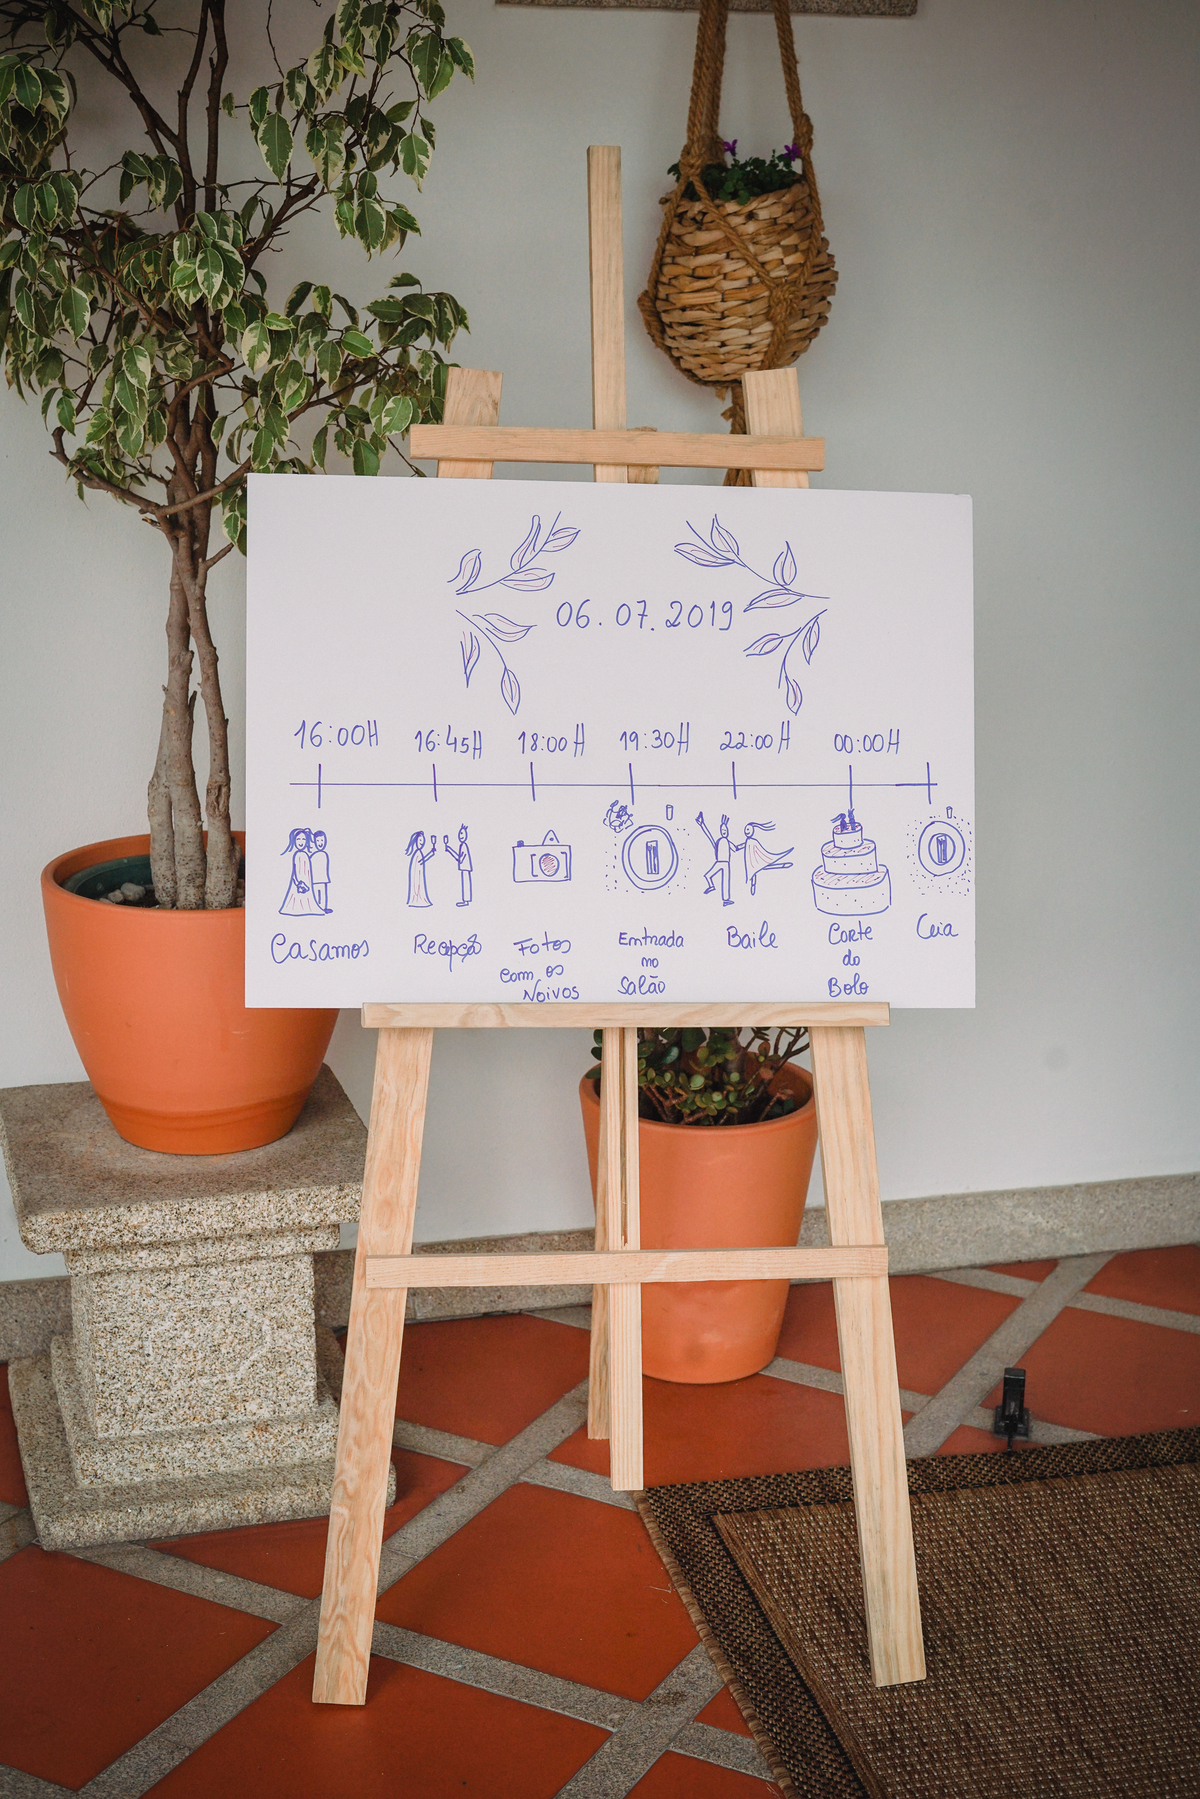 06.07.2019
16:00H
16:45H
18:00H
19:30H
22:00H
00:00H
Casamos
Recepção
Fotos
com os
Noivos
Entrada
no
Salão
Baile
Corte
do
Bolo
Ceia